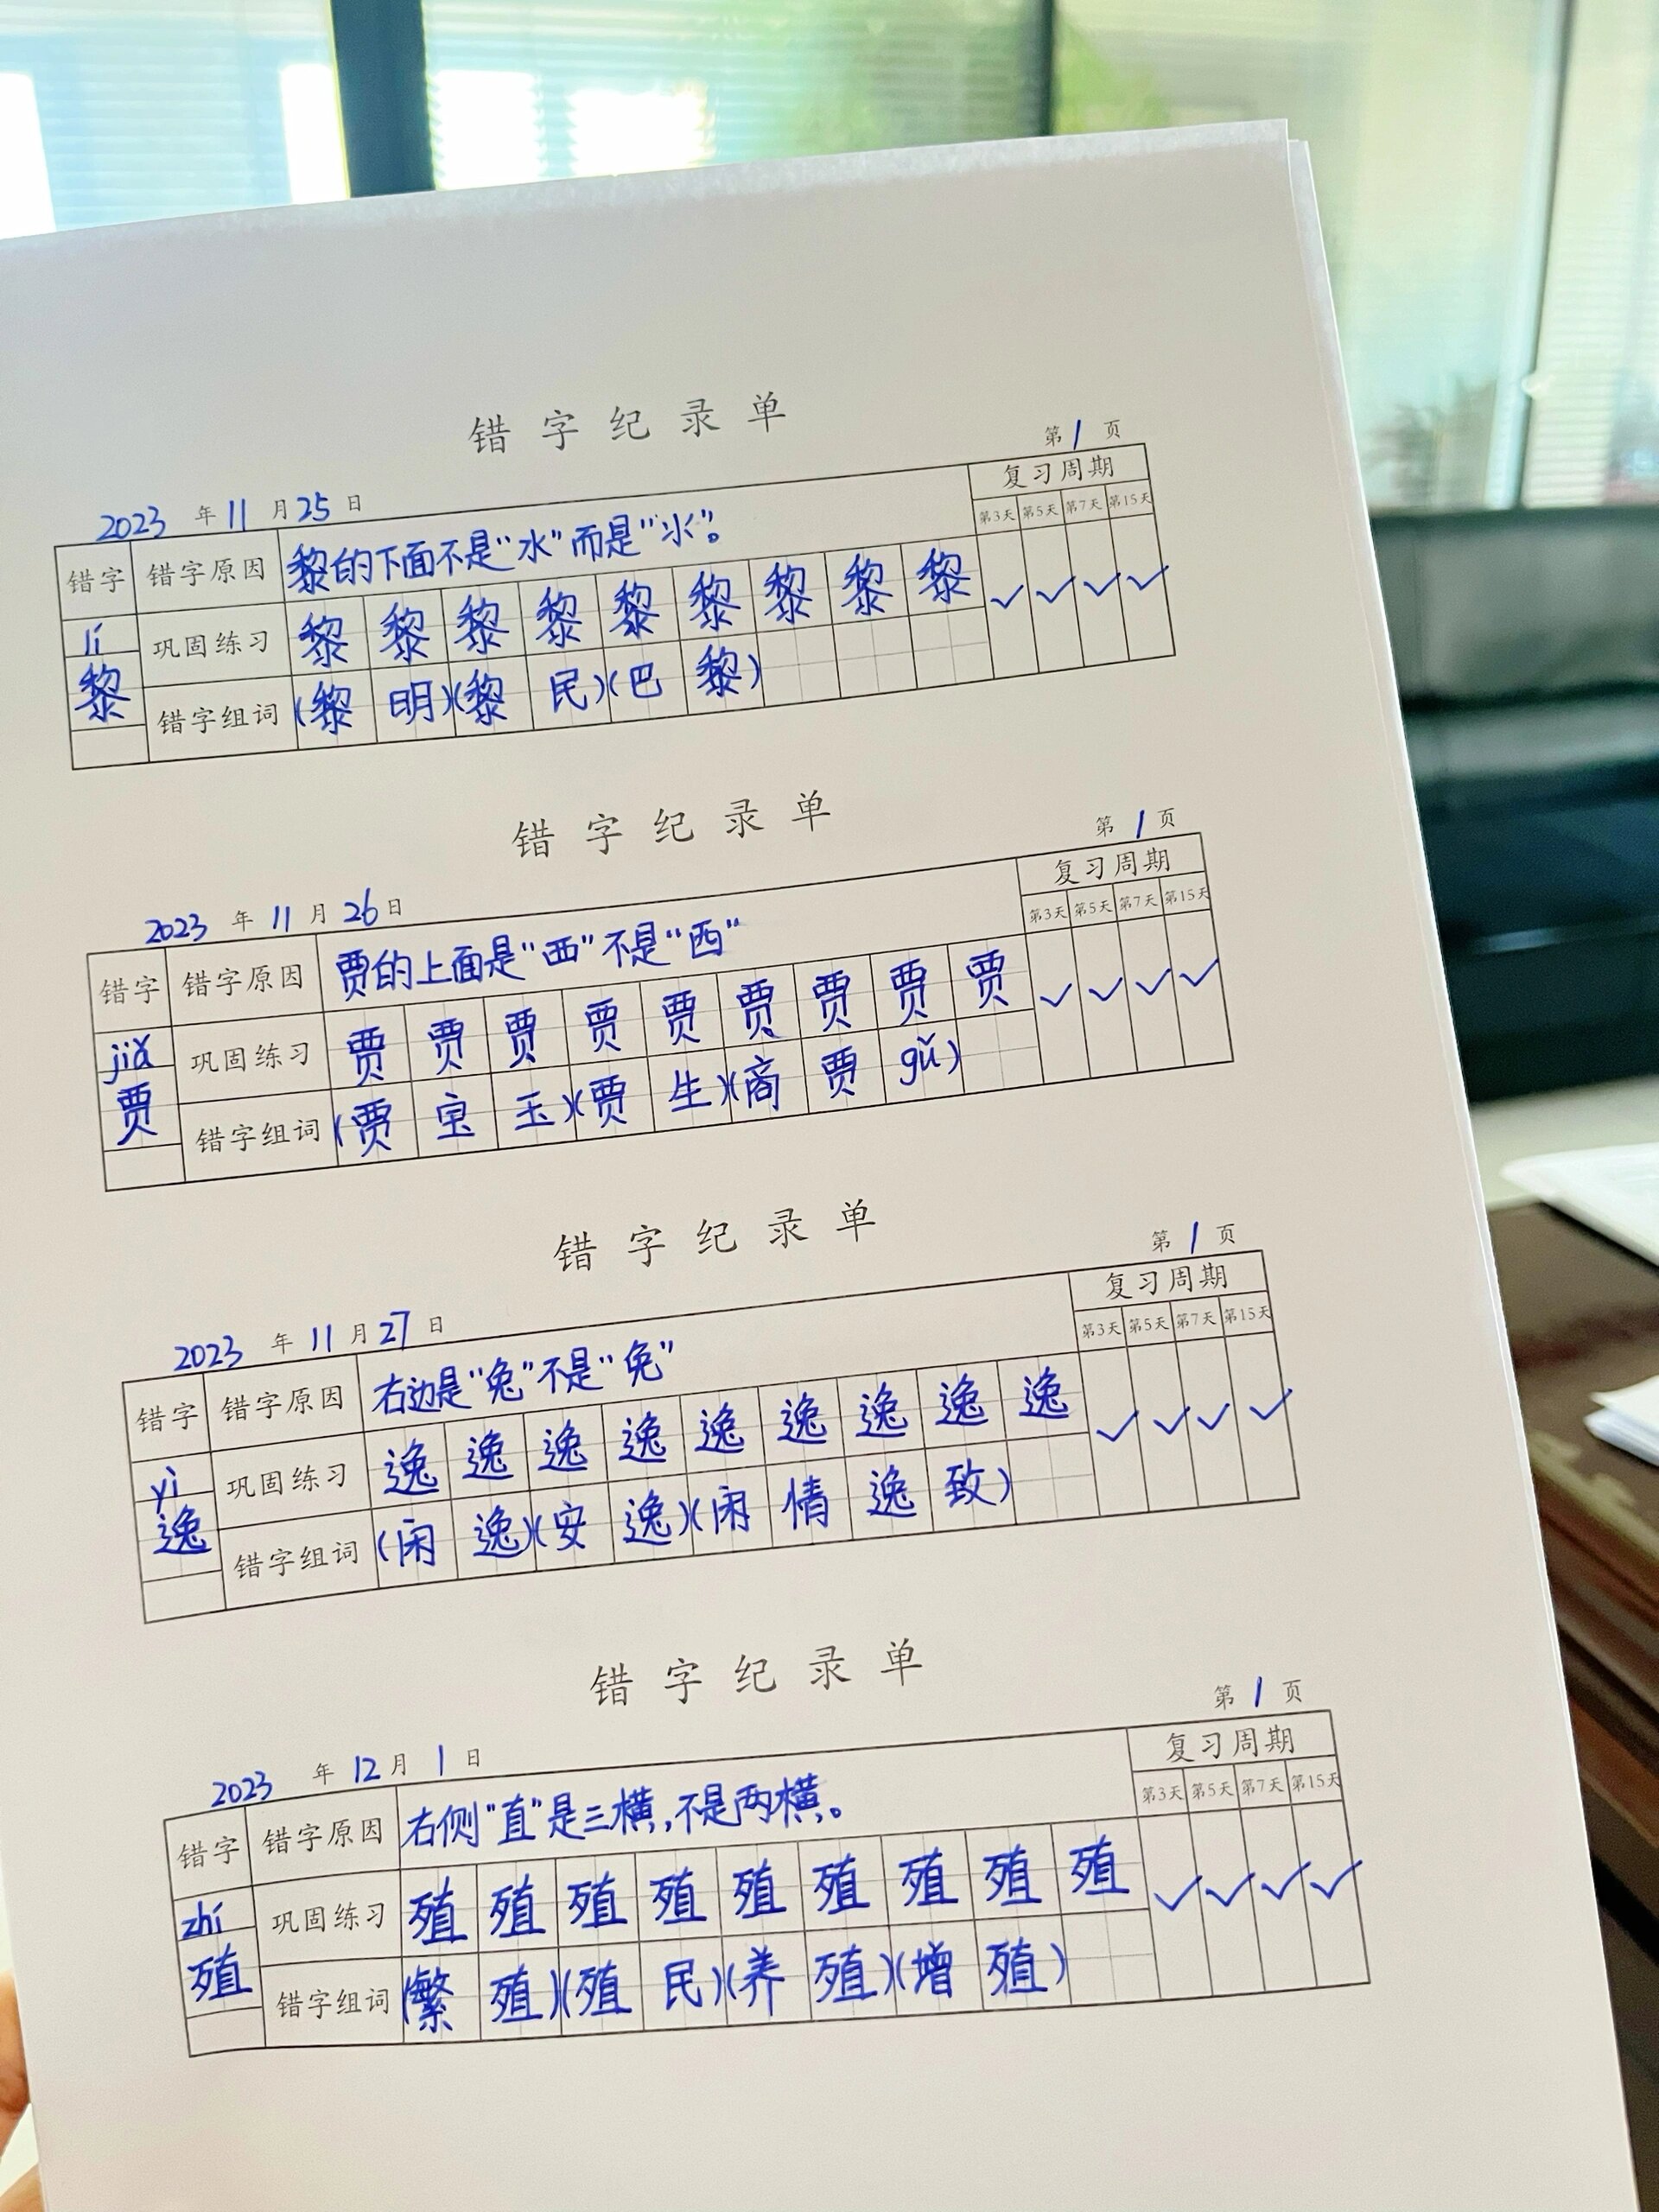 错字纪录单
第1页
2023年11月25日
复习周期
第3天 第5天 第7天 第15天
错字 错字原因 黎的下面不是“水”而是“氺”。
lí
黎
巩固练习 黎 黎 黎 黎 黎 黎 黎 黎 黎
错字组词 (黎明)(黎民)(巴黎)
错字纪录单
第1页
2023年11月26日
复习周期
第3天 第5天 第7天 第15天
错字 错字原因 贾的上面是“覀”不是“西”
jiǎ
贾
巩固练习 贾 贾 贾 贾 贾 贾 贾 贾 贾
错字组词 (贾宝玉)(贾生)(商贾gǔ)
错字纪录单
第1页
2023年11月27日
复习周期
第3天 第5天 第7天 第15天
错字 错字原因 右边是“兔”不是“免”
yì
逸
巩固练习 逸 逸 逸 逸 逸 逸 逸 逸 逸
错字组词 (闲逸)(安逸)(闲情逸致)
错字纪录单
第1页
2023年12月1日
复习周期
第3天 第5天 第7天 第15天
错字 错字原因 右侧“直”是三横,不是两横。
zhí
殖
巩固练习 殖 殖 殖 殖 殖 殖 殖 殖 殖
错字组词 (繁殖)(殖民)(养殖)(增殖)